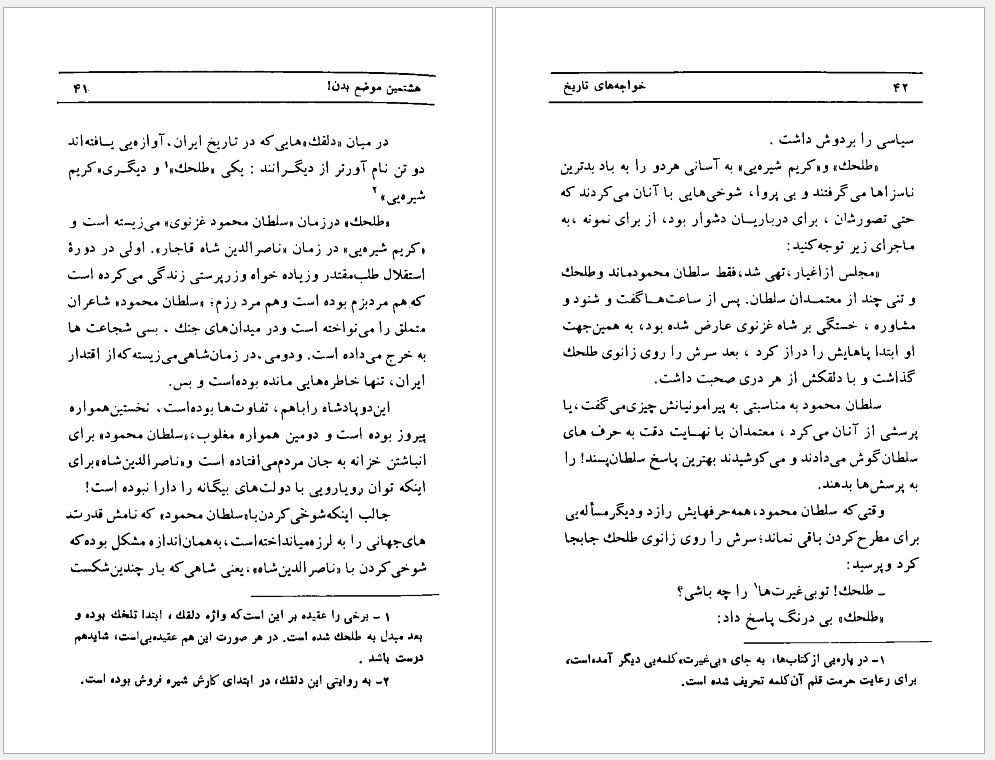 هشتمین موضع بدن! ۴۱
در میان «دلقك»هایی‌که در تاریخ ایران، آوازه‌یی یـافته‌اند
دو تن نام آورتر از دیگـرانند : یکی «طلحك»۱ و دیگـری«کریم
شیره‌یی»۲
«طلحك» درزمان «سلطان محمود غزنوی» می‌زیسته است و
«کریم شیره‌یی» در زمان «ناصرالدین شاه قاجار». اولی در دورهٔ
استقلال طلب‌مقتدر وزیاده خواه وزرپرستی زندگی می‌کرده است
که‌هم مردبزم بوده است وهم مرد رزم؛ «سلطان محمود» شاعران
متملق را می‌نواخته است ودر میدان‌های جنك ، بسی شجاعت ها
به خرج می‌داده است. ودومی ،در زمان‌شاهی‌می‌زیسته‌که‌از اقتدار
ایران، تنها خاطره‌هایی مانده بوده‌است و بس.
این‌دوپادشاه راباهم، تفاوت‌ها بوده‌است. نخستین‌همواره
پیروز بوده است و دومین همواره مغلوب،«سلطان محمود» برای
انباشتن خزانه به جان مردم‌می‌افتاده است و«ناصرالدین‌شاه»برای
اینکه توان رویارویی با دولت‌های بیگانه را دارا نبوده است!
جالب اینکه‌شوخی‌کردن‌با«سلطان محمود» که نامش قدرت‌
های‌جهانی را به لرزه‌میانداخته‌است،به‌همان‌اندازه مشکل بوده‌که
شوخی‌کردن با «ناصرالدین‌شاه»،یعنی شاهی‌که بار چندین‌شکست
۱ – برخی را عقیده بر این است‌که واژه دلقك ، ابتدا تلخك بوده و
بعد مبدل به طلحك شده است. در هر صورت این هم عقیده‌یی‌است، شایدهم
درست باشد .
۲– به روایتی این دلقك، در ابتدای کارش شیره فروش بوده است.
۴۲ خواجه‌های تاریخ
سیاسی را بردوش داشت .
«طلحك» و«کریم شیره‌یی» به آسانی هردو را به باد بدترین
ناسزاها می‌گرفتند و بی پروا، شوخی‌هایی با آنان می‌کردند که
حتی تصورشان ، برای درباریـان دشوار بود، از برای نمونه ،به
ماجرای زیر توجه‌کنید:
«مجلس ازاغیار،تهی شد،فقط سلطان محمودماند وطلحك
و تنی چند از معتمـدان سلطان. پس از ساعت‌هـاگفت و شنود و
مشاوره ، خستگی بر شاه غزنوی عارض شده بود، به همین‌جهت
او ابتدا پاهایش را دراز کرد ، بعد سرش را روی زانوی طلحك
گذاشت و با دلقکش از هر دری صحبت داشت.
سلطان محمود به مناسبتی به پیرامونیانش چیزی‌می‌گفت،یا
پرسشی از آنان می‌کرد ، معتمدان با نهـایت دقت به حرف های
سلطان‌گوش می‌دادند و می‌کوشیدند بهترین پاسخ سلطان‌پسند! را
به پرسش‌ها بدهند.
وقتی‌که سلطان محمود،همه‌حرفهایش رازد ودیگرمسأله‌یی
برای مطرح‌کردن باقی نماند؛سرش را روی زانوی طلحك جابجا
کرد وپرسید:
ـ طلحك! توبی‌غیرت‌ها۱ را چه باشی؟
«طلحك» بی درنگ پاسخ داد:
۱– در پاره‌یی ازکتاب‌ها، به جای «بی‌غیرت»کلمه‌یی دیگر آمده‌است،
برای رعایت حرمت قلم آن‌کلمه تحریف شده است.